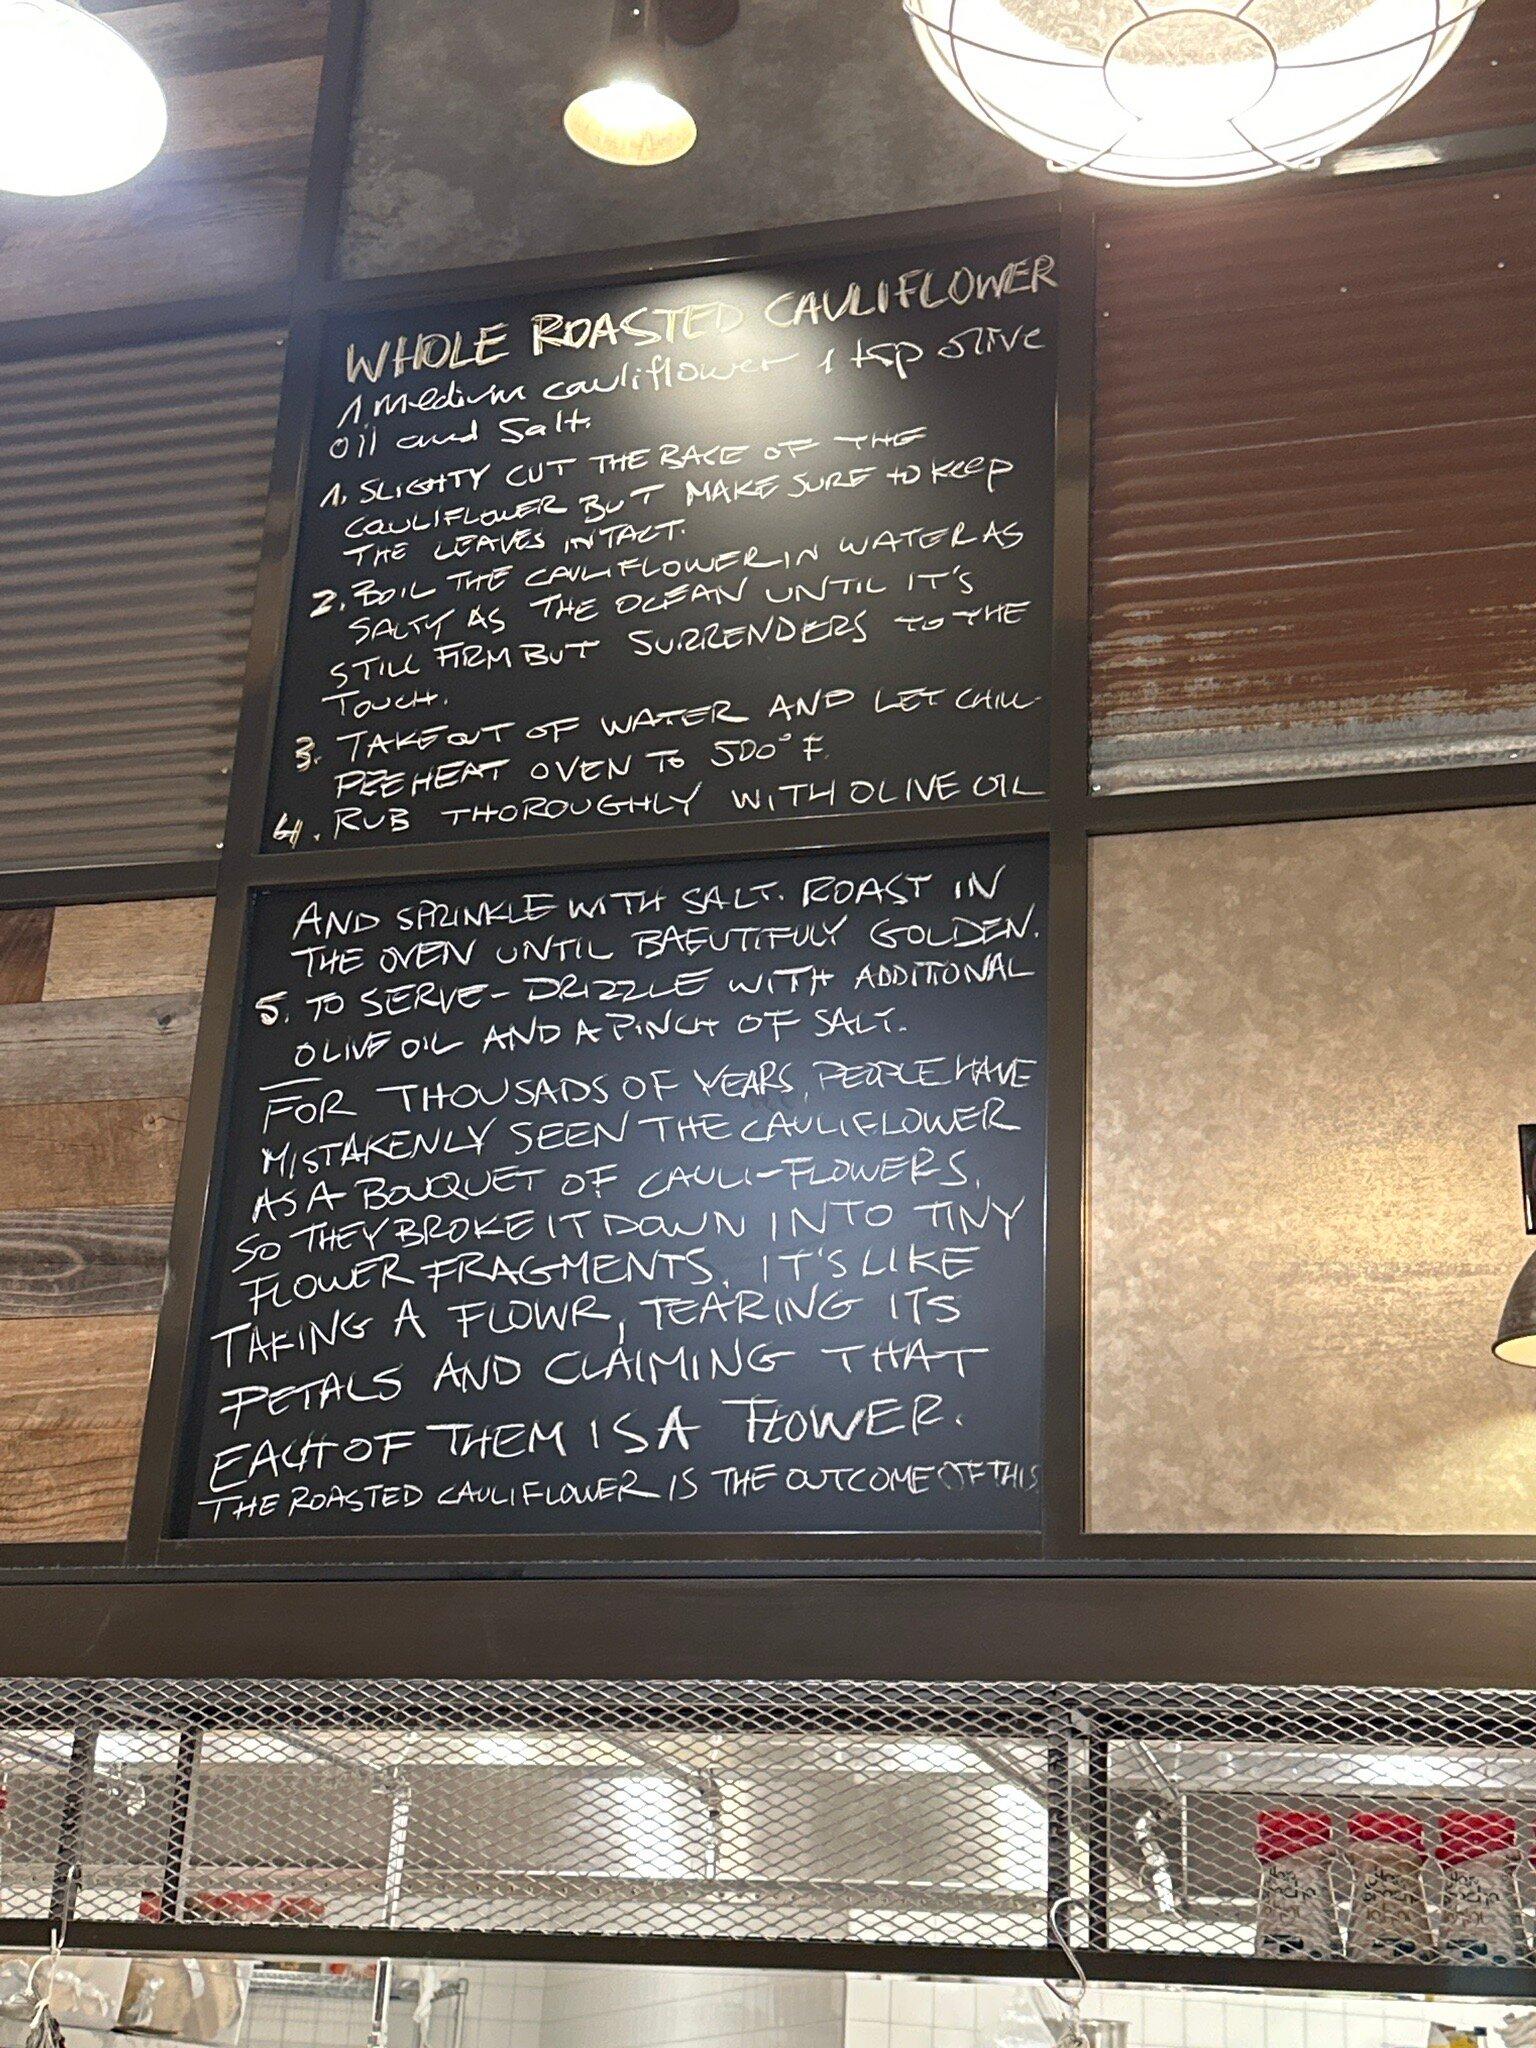 WHOLE ROASTED CAULIFLOWER
1 medium cauliflower 1 tsp olive
oil and salt.
1. SLIGHTY CUT THE BASE OF THE
CAULIFLOWER BUT MAKE SURE TO KEEP
THE LEAVES INTACT.
2. BOIL THE CAULIFLOWER IN WATER AS
SALTY AS THE OCEAN UNTIL IT'S
STILL FIRM BUT SURRENDERS TO THE
TOUCH.
3. TAKE OUT OF WATER AND LET CHILL-
PREHEAT OVEN TO 500° F.
4. RUB THOROUGHLY WITH OLIVE OIL
AND SPRINKLE WITH SALT. ROAST IN
THE OVEN UNTIL BAEUTIFULY GOLDEN.
5. TO SERVE- DRIZZLE WITH ADDITIONAL
OLIVE OIL AND A PINCH OF SALT.
FOR THOUSADS OF YEARS, PEOPLE HAVE
MISTAKENLY SEEN THE CAULIFLOWER
AS A BOUQUET OF CAULI-FLOWERS,
SO THEY BROKE IT DOWN INTO TINY
FLOWER FRAGMENTS. IT'S LIKE
TAKING A FLOWR, TEARING ITS
PETALS AND CLAIMING THAT
EACH OF THEM IS A FLOWER.
THE ROASTED CAULIFLOWER IS THE OUTCOME OF THIS